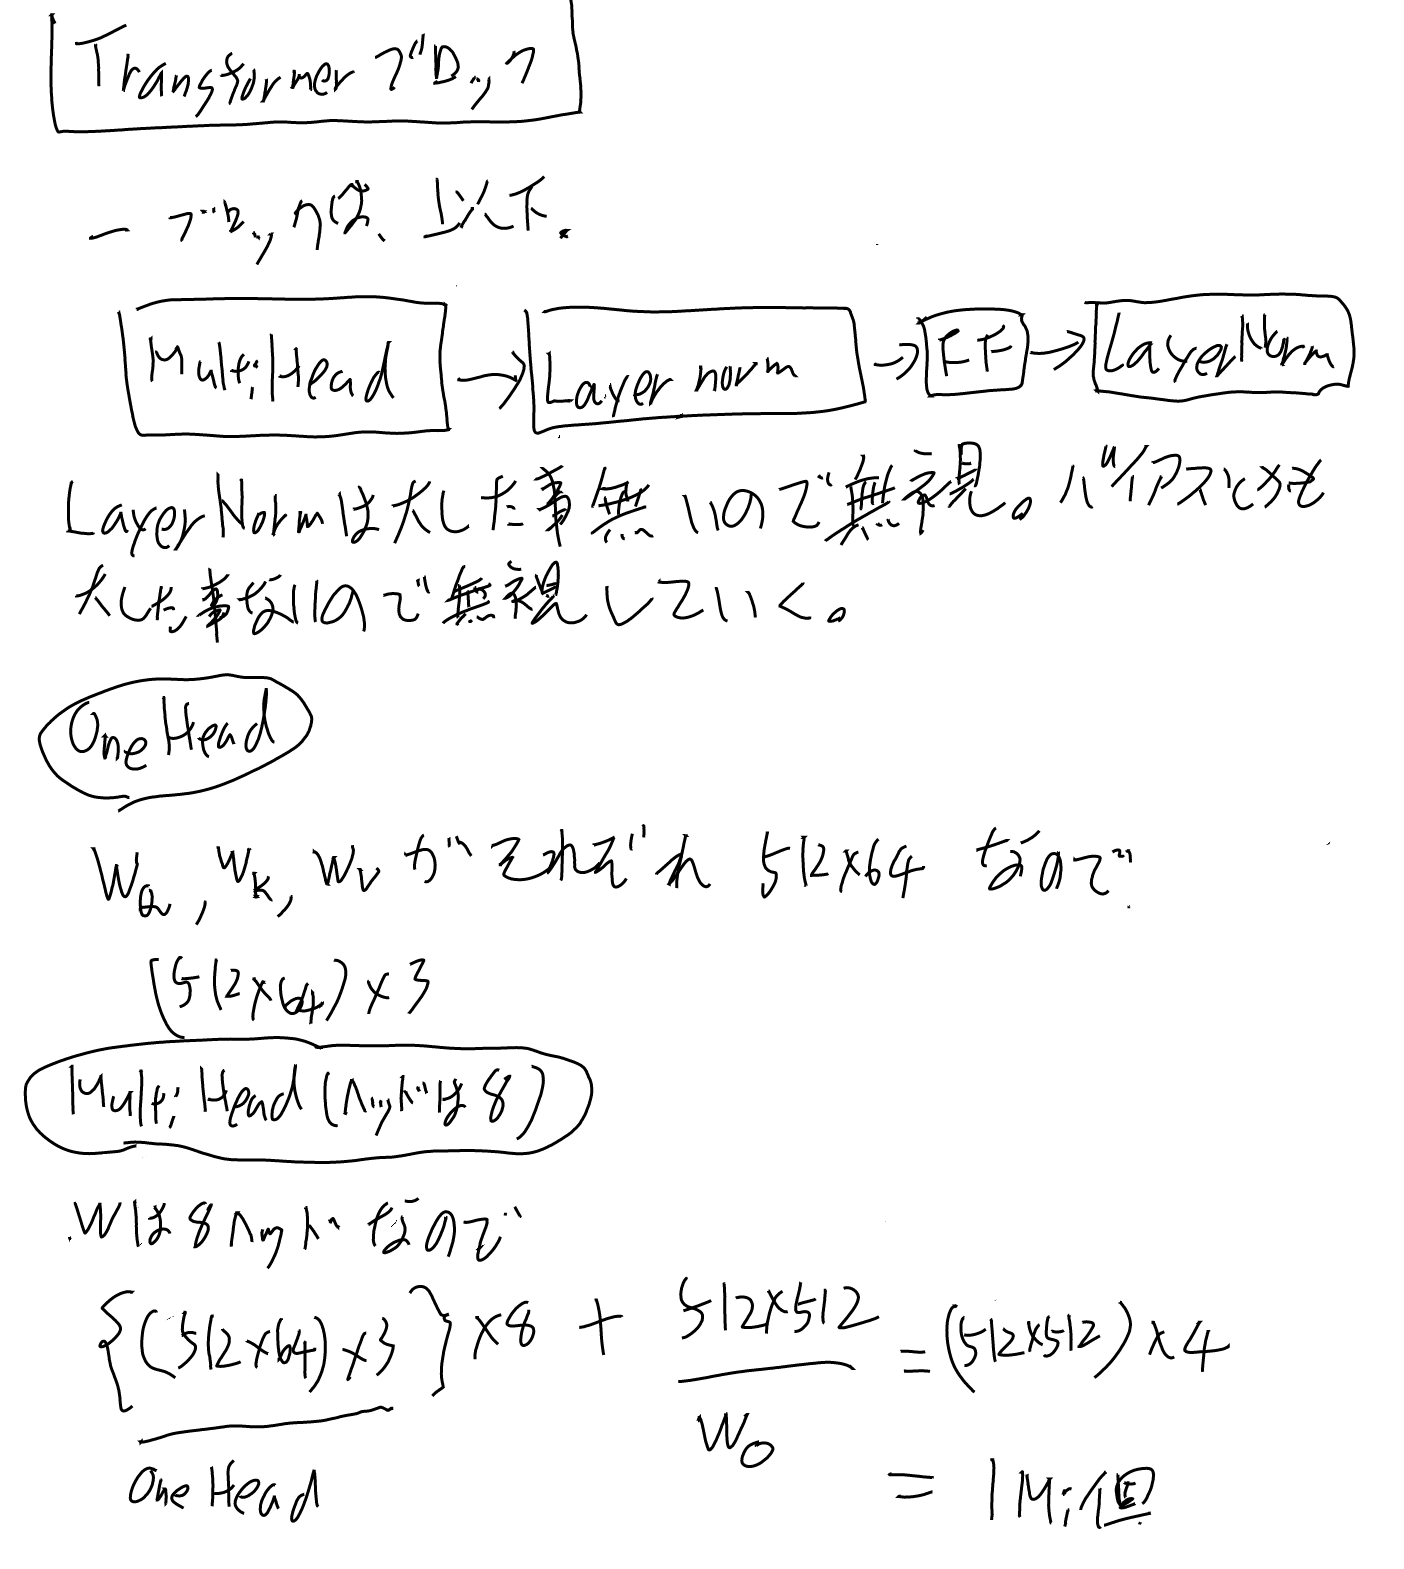 Transformer ブロック
一ブロックは、以下.
MultiHead → Layer norm → FF → LayerNorm
LayerNormは大した事無いので無視。バイアスとかも
大した事ないので無視していく。
One Head
WQ, WK, WV がそれぞれ 512×64 なので
(512×64)×3
Multi Head (ヘッドは8)
Wは8ヘッドなので
{(512×64)×3}×8 + 512×512 = (512×512)×4
One Head WO
= 1Mi個